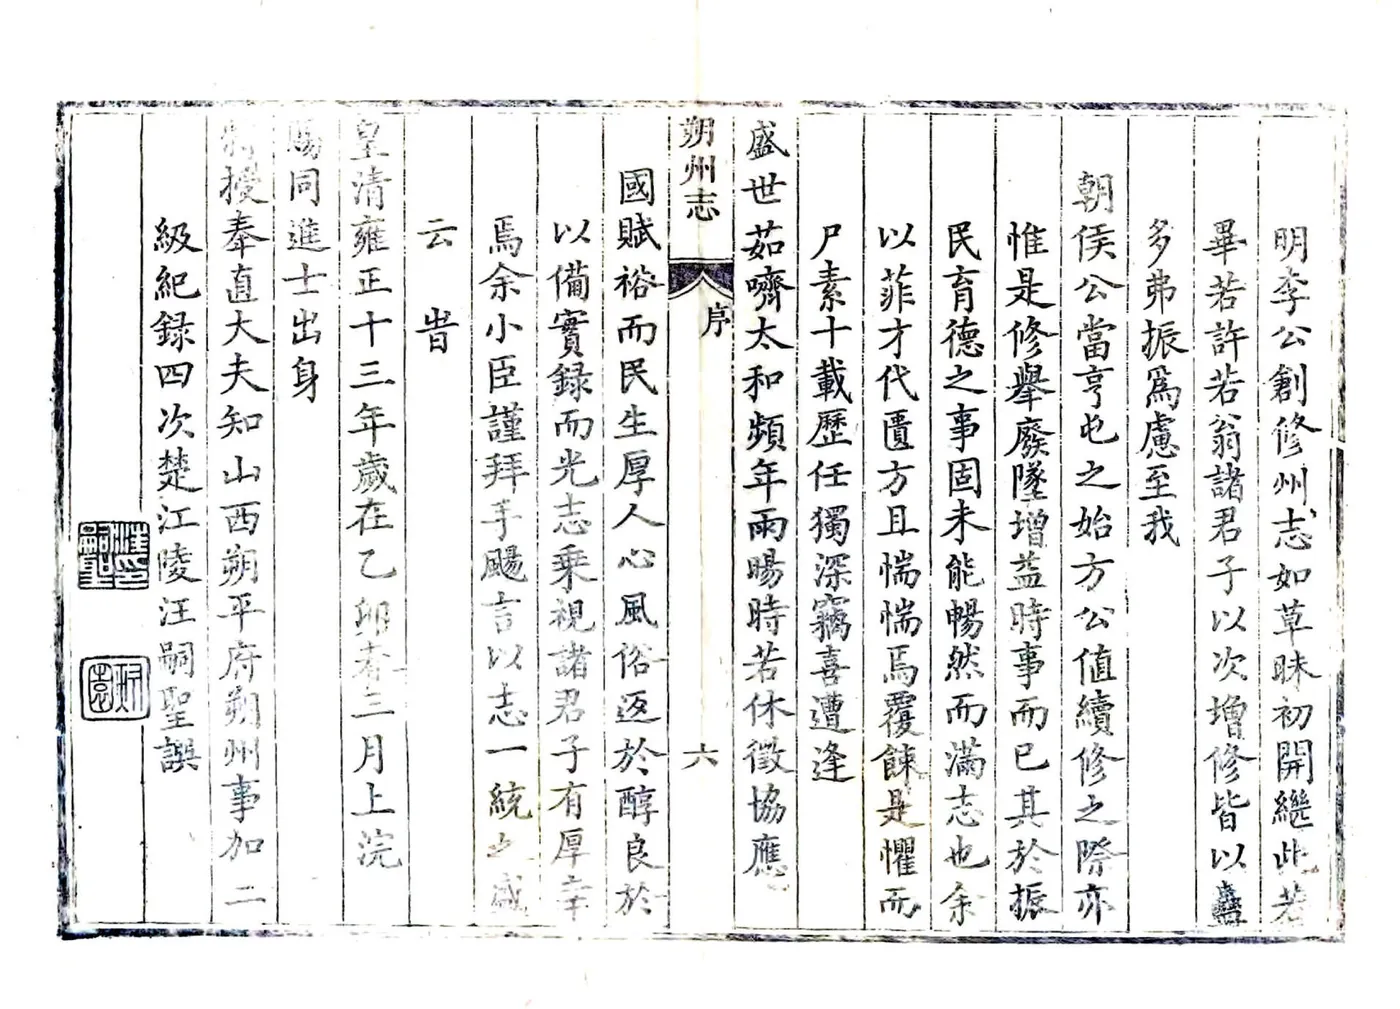 明李公創修州志如草昧初開繼此若
畢若許若翁諸君子以次增修皆以蠹
多弗振爲慮至我
朝侯公當亨屯之始方公值續修之際亦
惟是修舉廢墜增益時事而已其於振
民育德之事固未能暢然而滿志也余
以菲才代匱方且惴惴焉覆餗是懼而
尸素十載歷任獨深竊喜遭逢
盛世茹嚌太和頻年雨暘時若休徵協應
朔州志
序
六
國賦裕而民生厚人心風俗返於醇良於
以備實録而光志乗視諸君子有厚幸
焉余小臣謹拜手颺言以志一統之盛
云 旹
皇清雍正十三年歲在乙夘春三月上浣
賜同進士出身
特授奉直大夫知山西朔平府朔州事加二
級紀録四次楚江陵汪嗣聖譔
汪嗣聖印